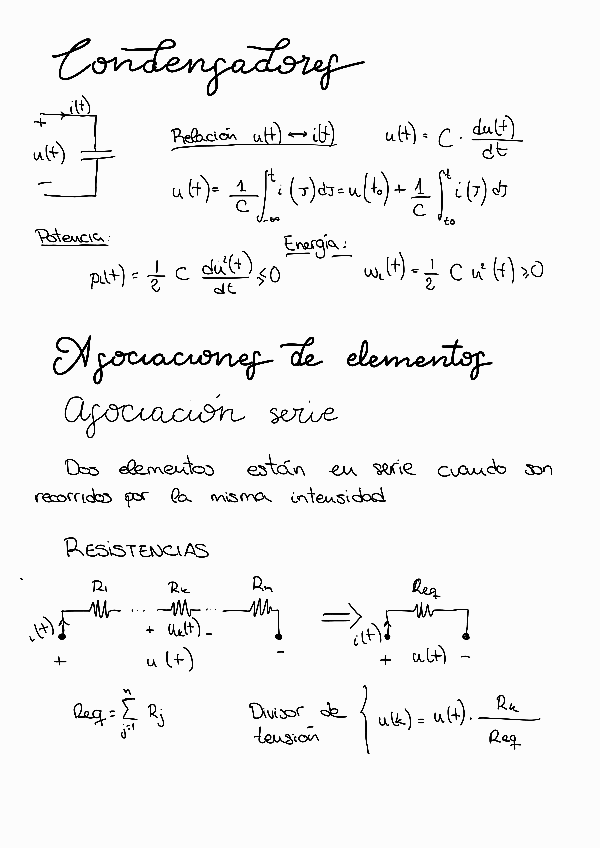 Condensadores
i(t)
+
u(t)
-
Relación u(t) ↔ i(t)
u(t) = C · du(t)/dt
u(t) = 1/C ∫_{-∞}^{t} i(τ)dτ = u(t₀) + 1/C ∫_{t₀}^{t} i(τ)dτ
Potencia:
p_L(t) = 1/2 C du²(t)/dt ≶ 0
Energía:
w_L(t) = 1/2 C u²(t) ≥ 0
Asociaciones de elementos
Asociación serie
Dos elementos están en serie cuando son
recorridos por la misma intensidad
RESISTENCIAS
R₁ ... R_k ... R_n
i(t) + u_k(t) -
+ u(t) -
⇒
Req
i(t)
+ u(t) -
Req = Σ_{j=1}^{n} R_j
Divisor de
tensión
{ u(k) = u(t) · R_k/Req